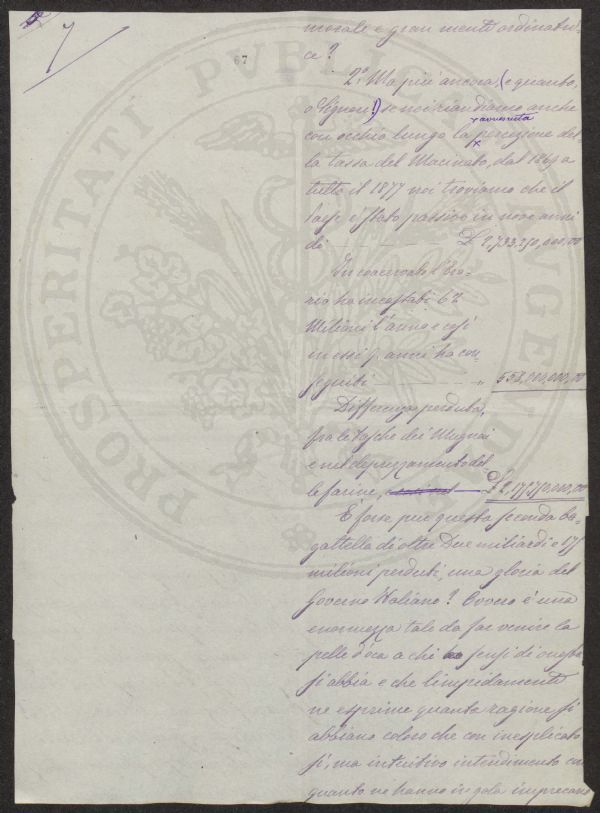 7
67
PROSPERITATI PVBLICAE AVGENDAE
morale e gran mente ordinatri-
ce?
2.º Ma più ancora, (e quanto,
o Signori!) se noi riandiamo anche
avvenuta
con occhio lungo la percezione del-
la tassa del Macinato, dal 1869 a
tutto il 1877 noi troviamo che il
paese è stato passivo in nove anni
di £ 2,733,250,000,00
In coacervato l'Era-
rio ha incassati 62
Milioni l'anno e così
in essi 9 anni ha con-
seguiti " 558,000,000,00
Differenza perduta,
fra le tasche dei Mugnai
e nel deprezzamento del-
le farine, £ 2,175,250,000,00
È forse pur questa seconda ba-
gattella di oltre Due miliardi e 175
milioni perduti, una gloria del
Governo Italiano? Ovvero è una
enormezza tale da far venire la
pelle d'oca a chi sensi di onestà
si abbia e che limpidamente
ne esprime quanta ragione si
abbiano coloro che con inesplicato
sì, ma intuitivo intendimento
quanto ne hanno in gola imprecano